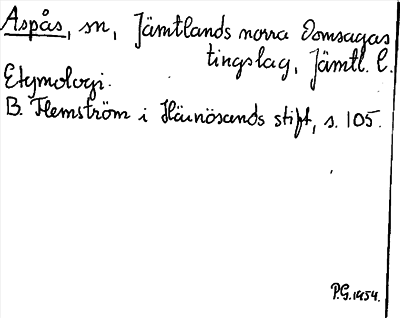 Aspås, sn, Jämtlands norra domsagas
tingslag, Jämtl. l.
Etymologi.
B. Flemström i Härnösands stift, s. 105.
P.G. 1954.